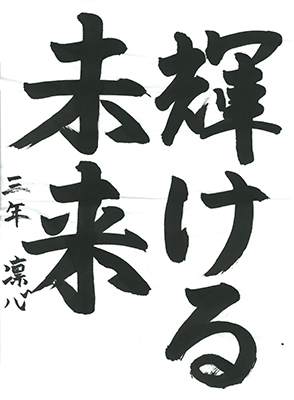 輝ける
未来
三年 凛八